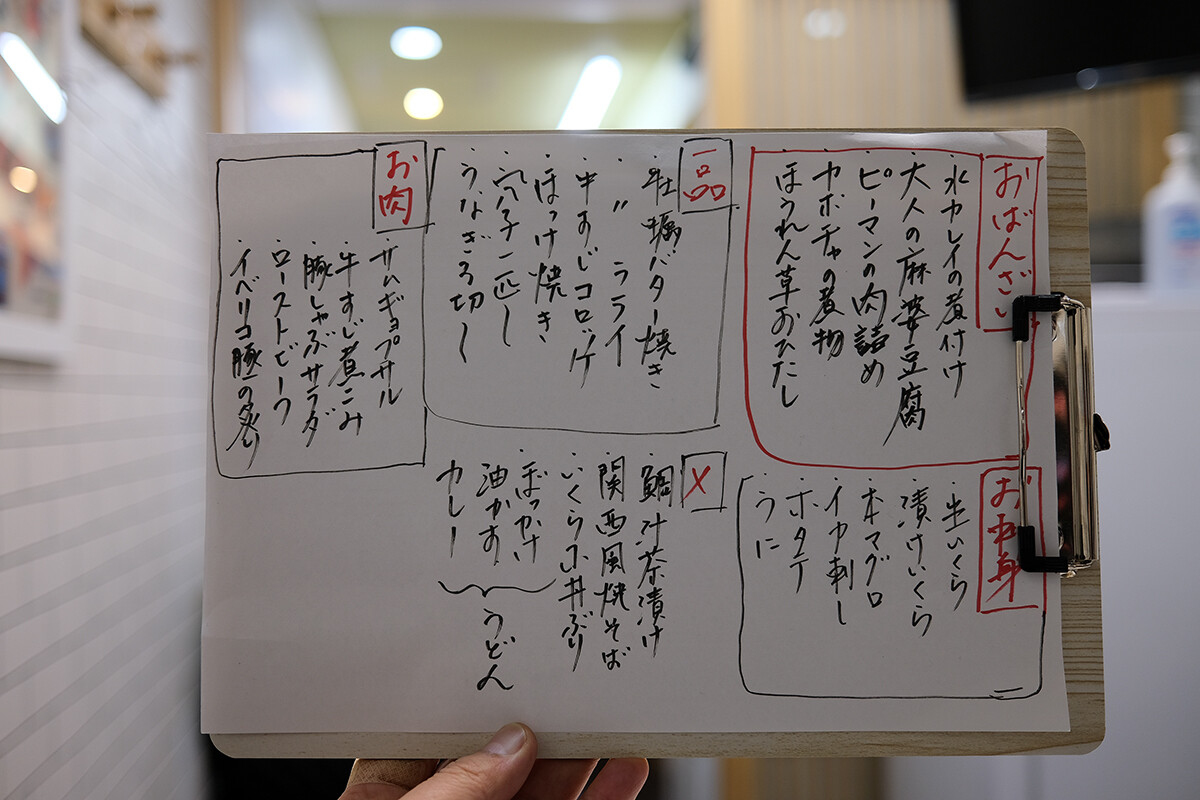 おばんざい
・水カレイの煮付け
・大人の麻婆豆腐
・ピーマンの肉詰め
・カボチャの煮物
・ほうれん草おひたし
お刺身
・生いくら
・漬けいくら
・本マグロ
・イカ刺し
・ホタテ
・うに
一品
・牡蠣バター焼き
・〃 フライ
・牛すじコロッケ
・ほっけ焼き
・穴子一匹〜
・うなぎろ切〜
〆
・鯛汁茶漬け
・関西風焼そば
・いくら小丼ぶり
・ぼっかけ
・油かす
・カレー
うどん
お肉
・サムギョプサル
・牛すじ煮こみ
・豚しゃぶサラダ
・ローストビーフ
・イベリコ豚の炙り